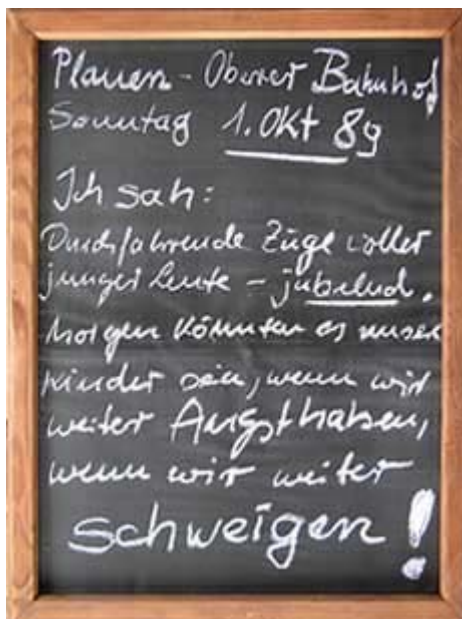 Plauen - Oberer Bahnhof
Sonntag 1. Okt 89
Ich sah:
Durchfahrende Züge voller
junger Leute - jubelnd.
Morgen könnten es unsere
Kinder sein, wenn wir
weiter Angst haben,
wenn wir weiter
schweigen!